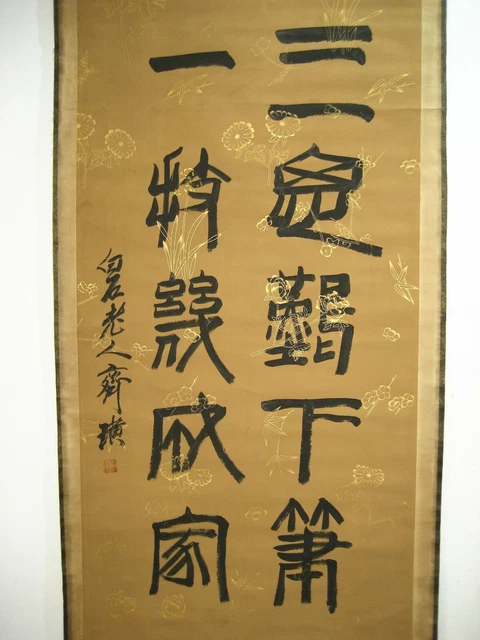 三思艱下筆
一技幾成家
白石老人齊璜